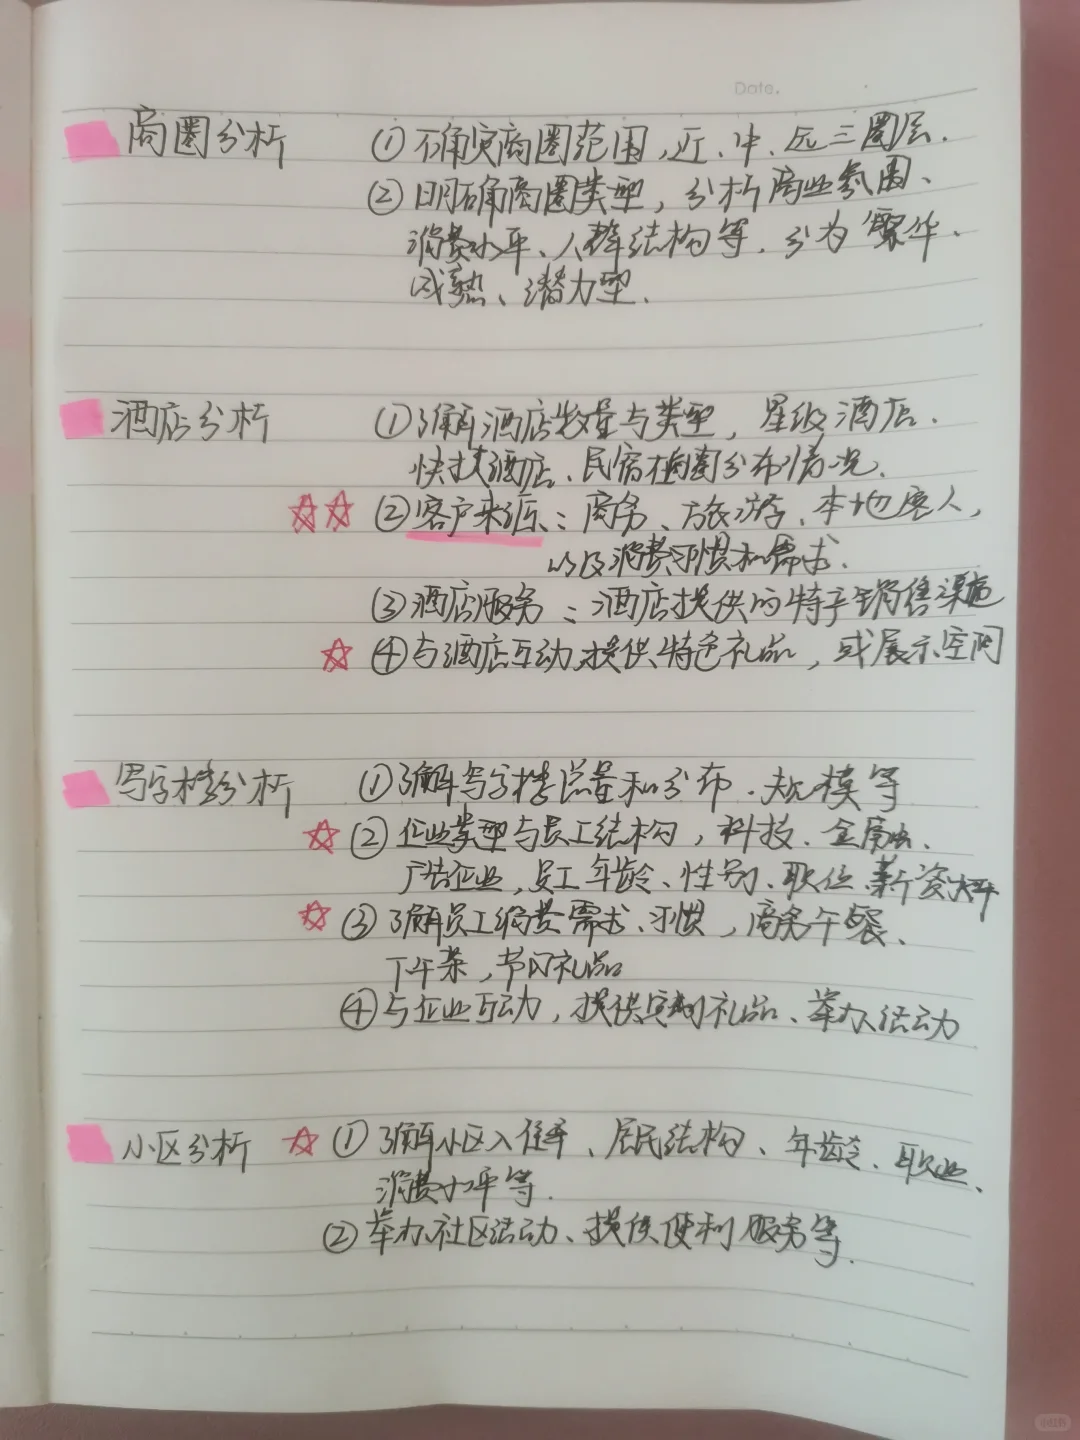 Date.
商圈分析 ①确定商圈范围,近、中、远三圈层.
②明确商圈类型,分析商业氛围、
消费水平、人群结构等.分为繁华、
成熟、潜力型.
酒店分析 ①了解酒店数量与类型,星级酒店.
快捷酒店、民宿在商圈分布情况.
②客户来源:商务、旅游、本地客人,
以及消费习惯和需求.
③酒店服务:酒店提供的特产销售渠道
④与酒店互动,提供特色礼品,或展示空间
写字楼分析 ①了解写字楼总量和分布.规模等
②企业类型与员工结构,科技.金融、
广告企业,员工年龄、性别、职位、薪资水平
③了解员工消费需求、习惯,商务午餐、
下午茶,节日礼品
④与企业互动,提供定制礼品、举办活动
小区分析 ①了解小区入住率、居民结构、年龄、职业、
消费水平等.
②举办社区活动、提供便利服务等.
小红书